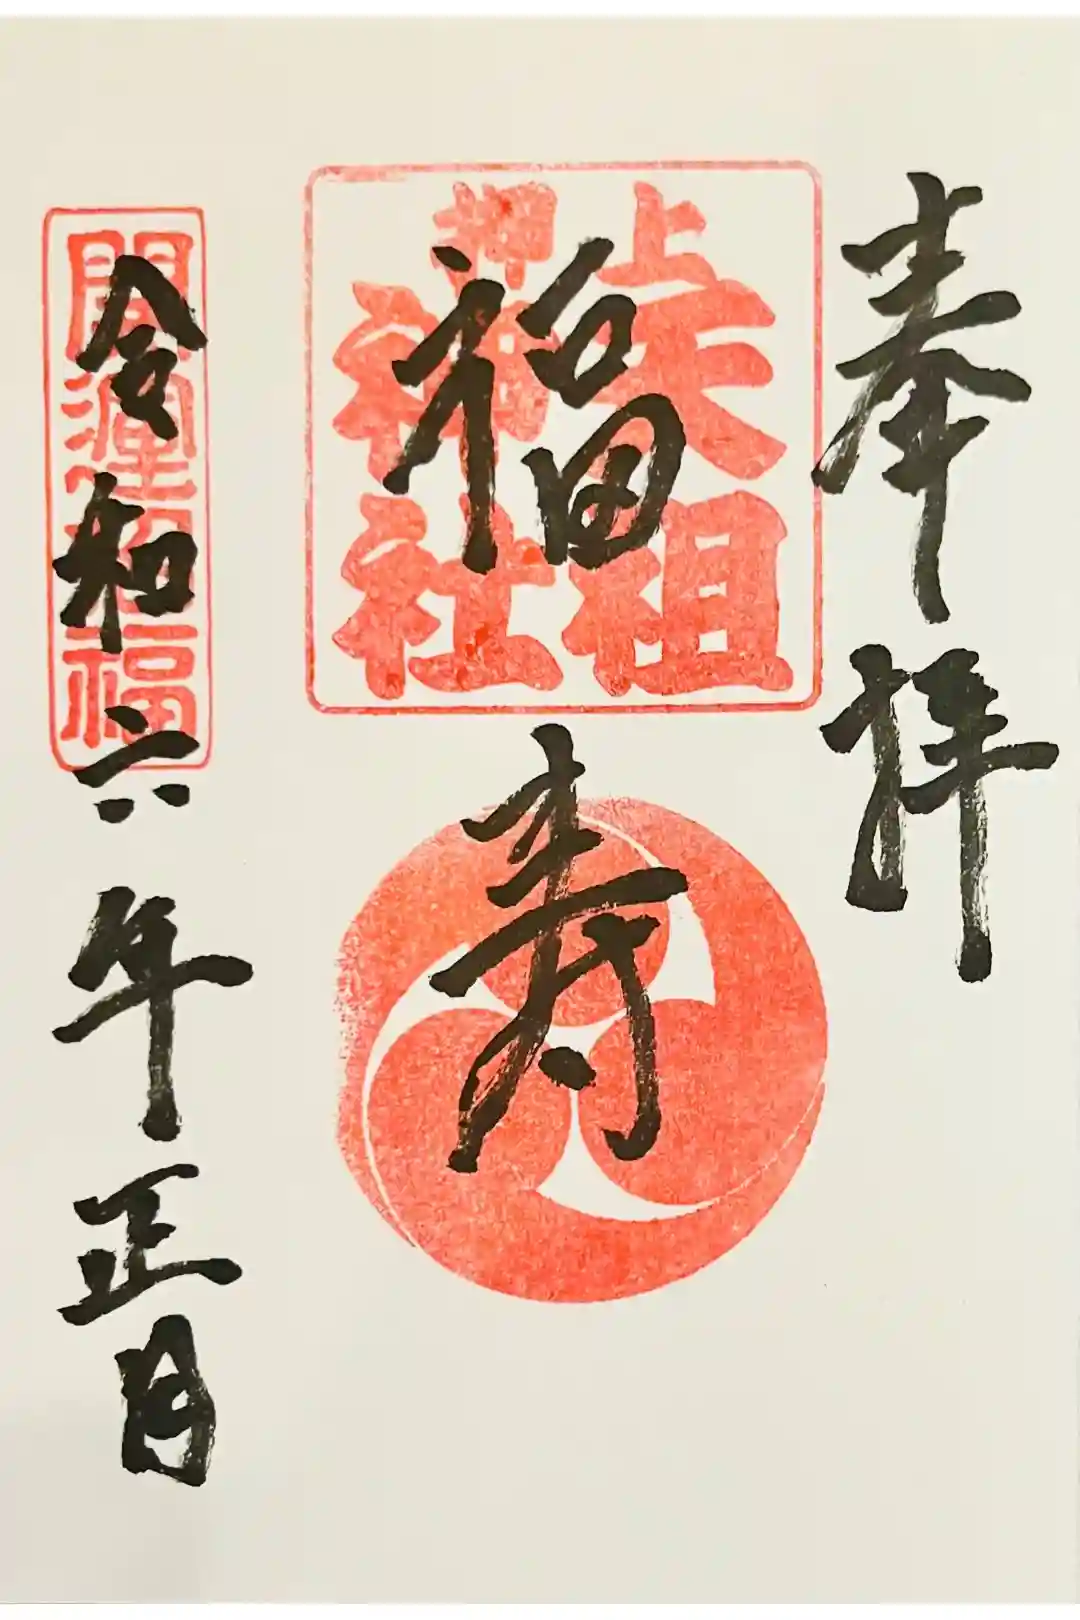 奉拝
押上
天祖
神社
福寿
開運招福
令和六年正月